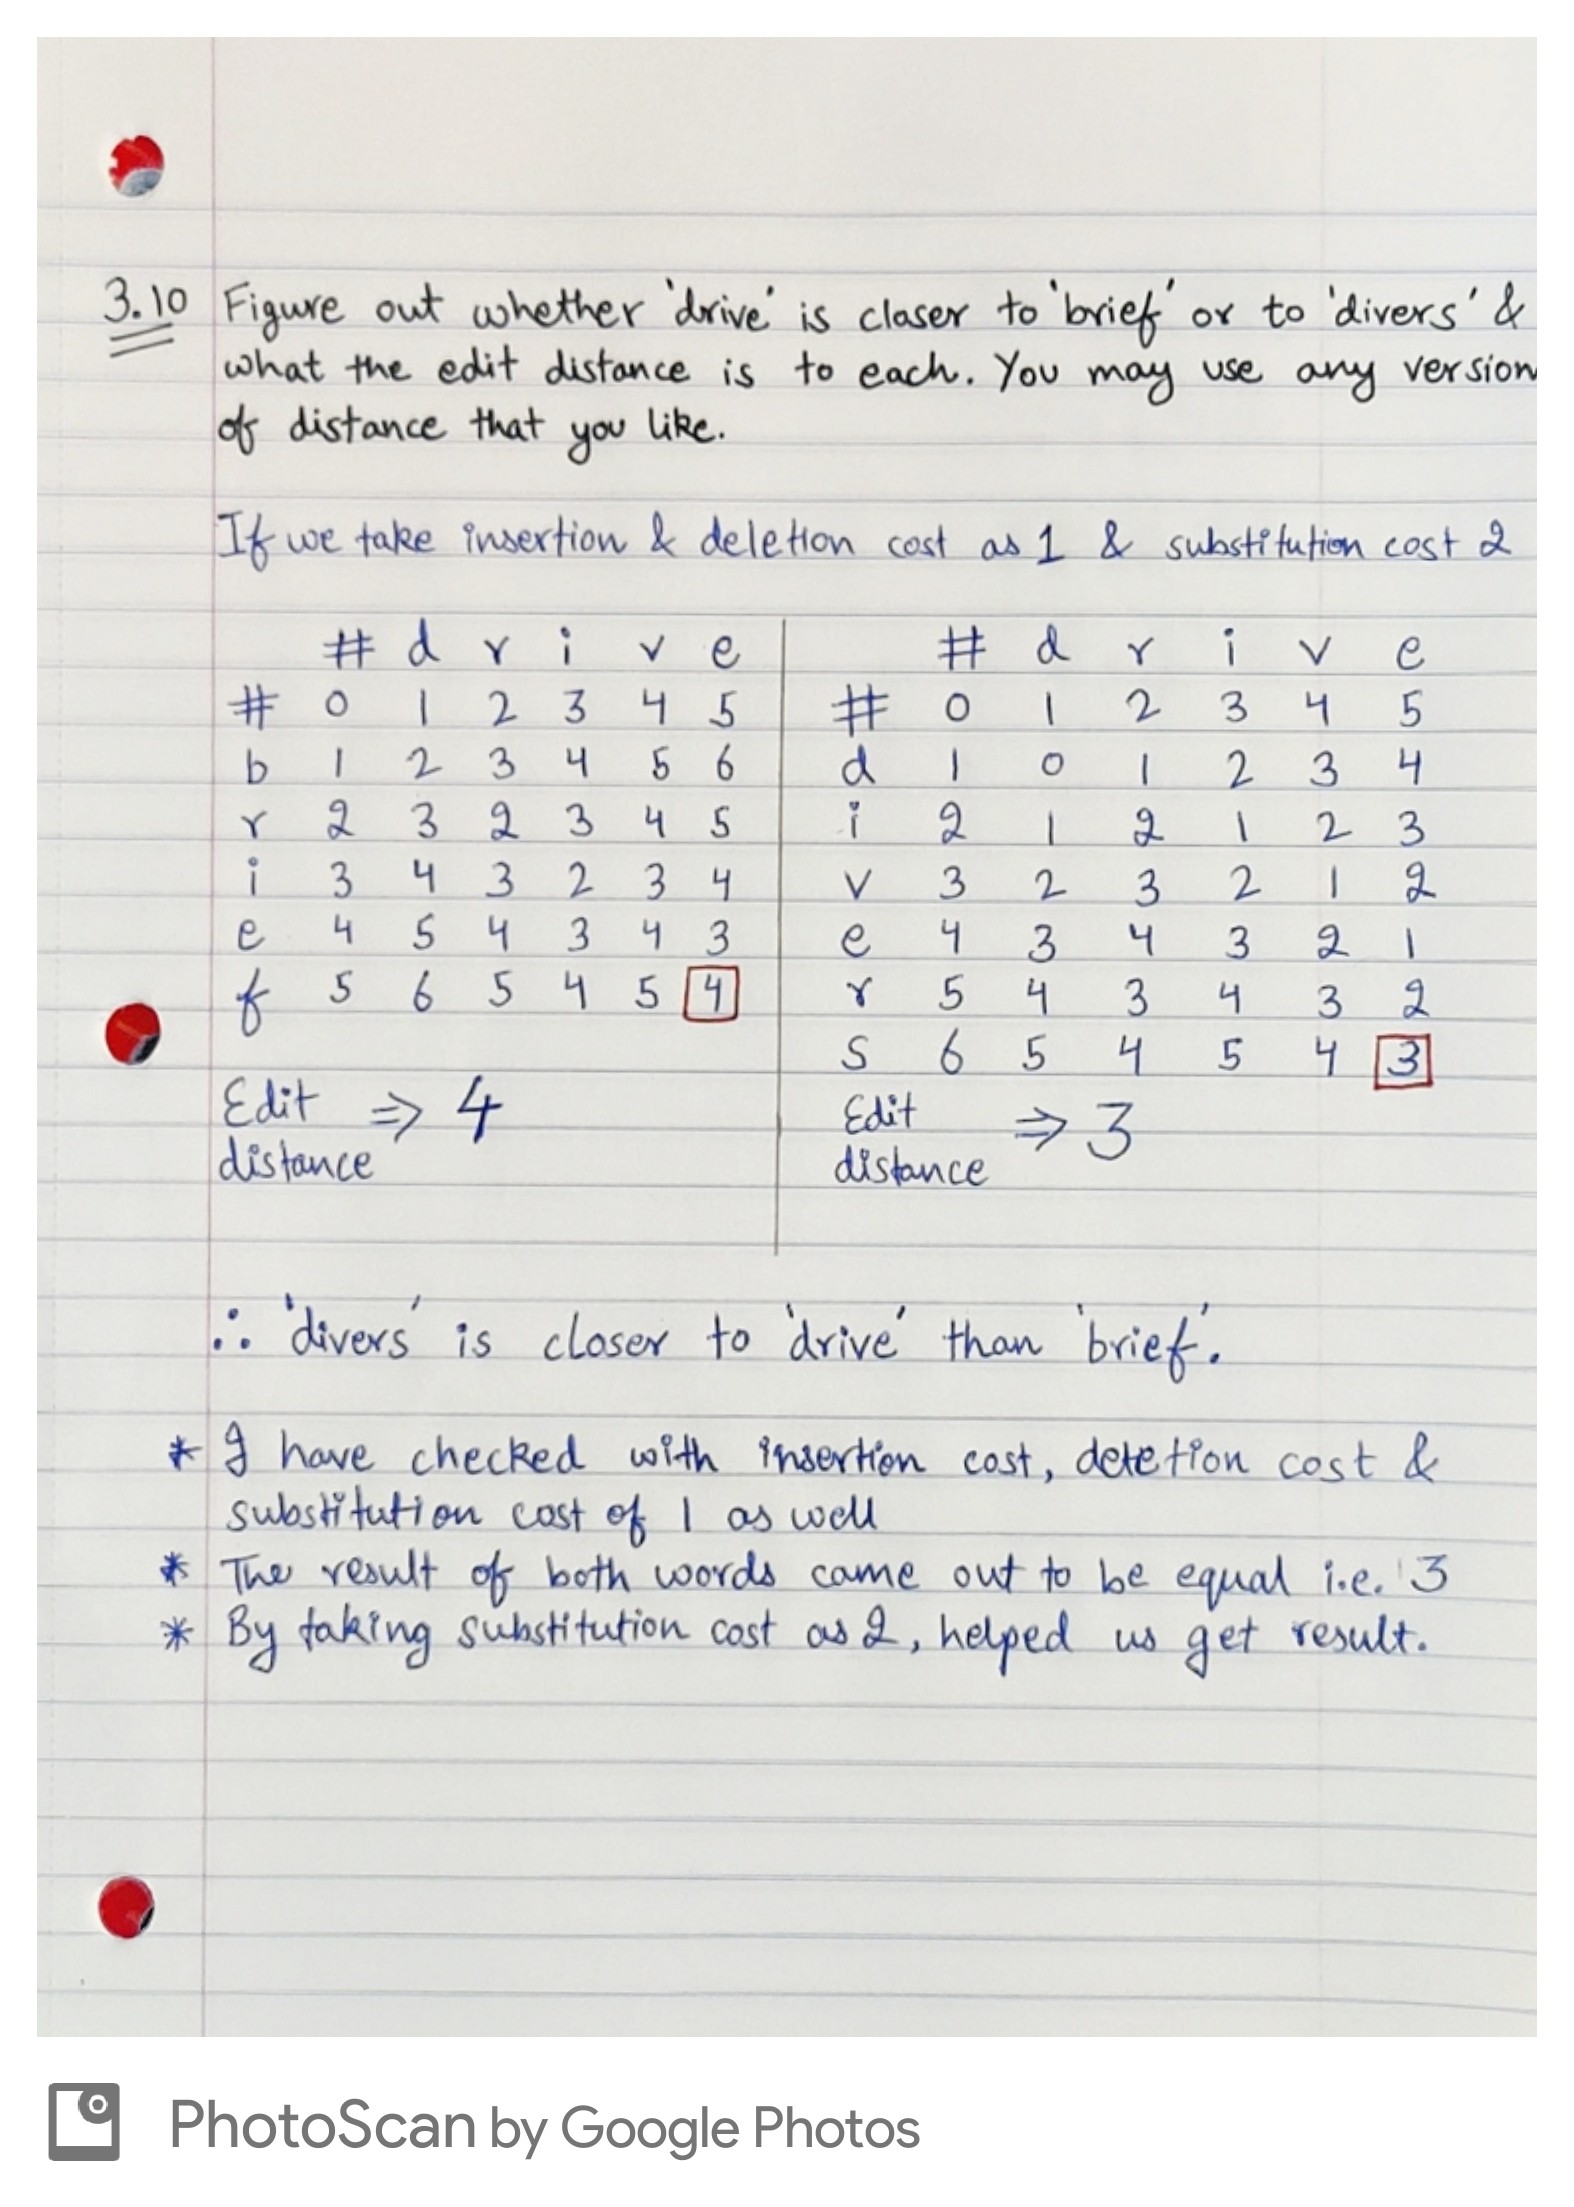 3.10 Figure out whether 'drive' is closer to 'brief' or to 'divers' &
what the edit distance is to each. You may use any version
of distance that you like.
If we take insertion & deletion cost as 1 & substitution cost 2
# d r i v e
# 0 1 2 3 4 5
b 1 2 3 4 5 6
r 2 3 2 3 4 5
i 3 4 3 2 3 4
e 4 5 4 3 4 3
f 5 6 5 4 5 4
Edit
distance ⇒ 4
# d r i v e
# 0 1 2 3 4 5
d 1 0 1 2 3 4
i 2 1 2 1 2 3
v 3 2 3 2 1 2
e 4 3 4 3 2 1
r 5 4 3 4 3 2
s 6 5 4 5 4 3
Edit
distance ⇒ 3
∴ 'divers' is closer to 'drive' than 'brief'.
* I have checked with insertion cost, deletion cost &
substitution cost of 1 as well
* The result of both words came out to be equal i.e. 3
* By taking substitution cost as 2, helped us get result.
PhotoScan by Google Photos